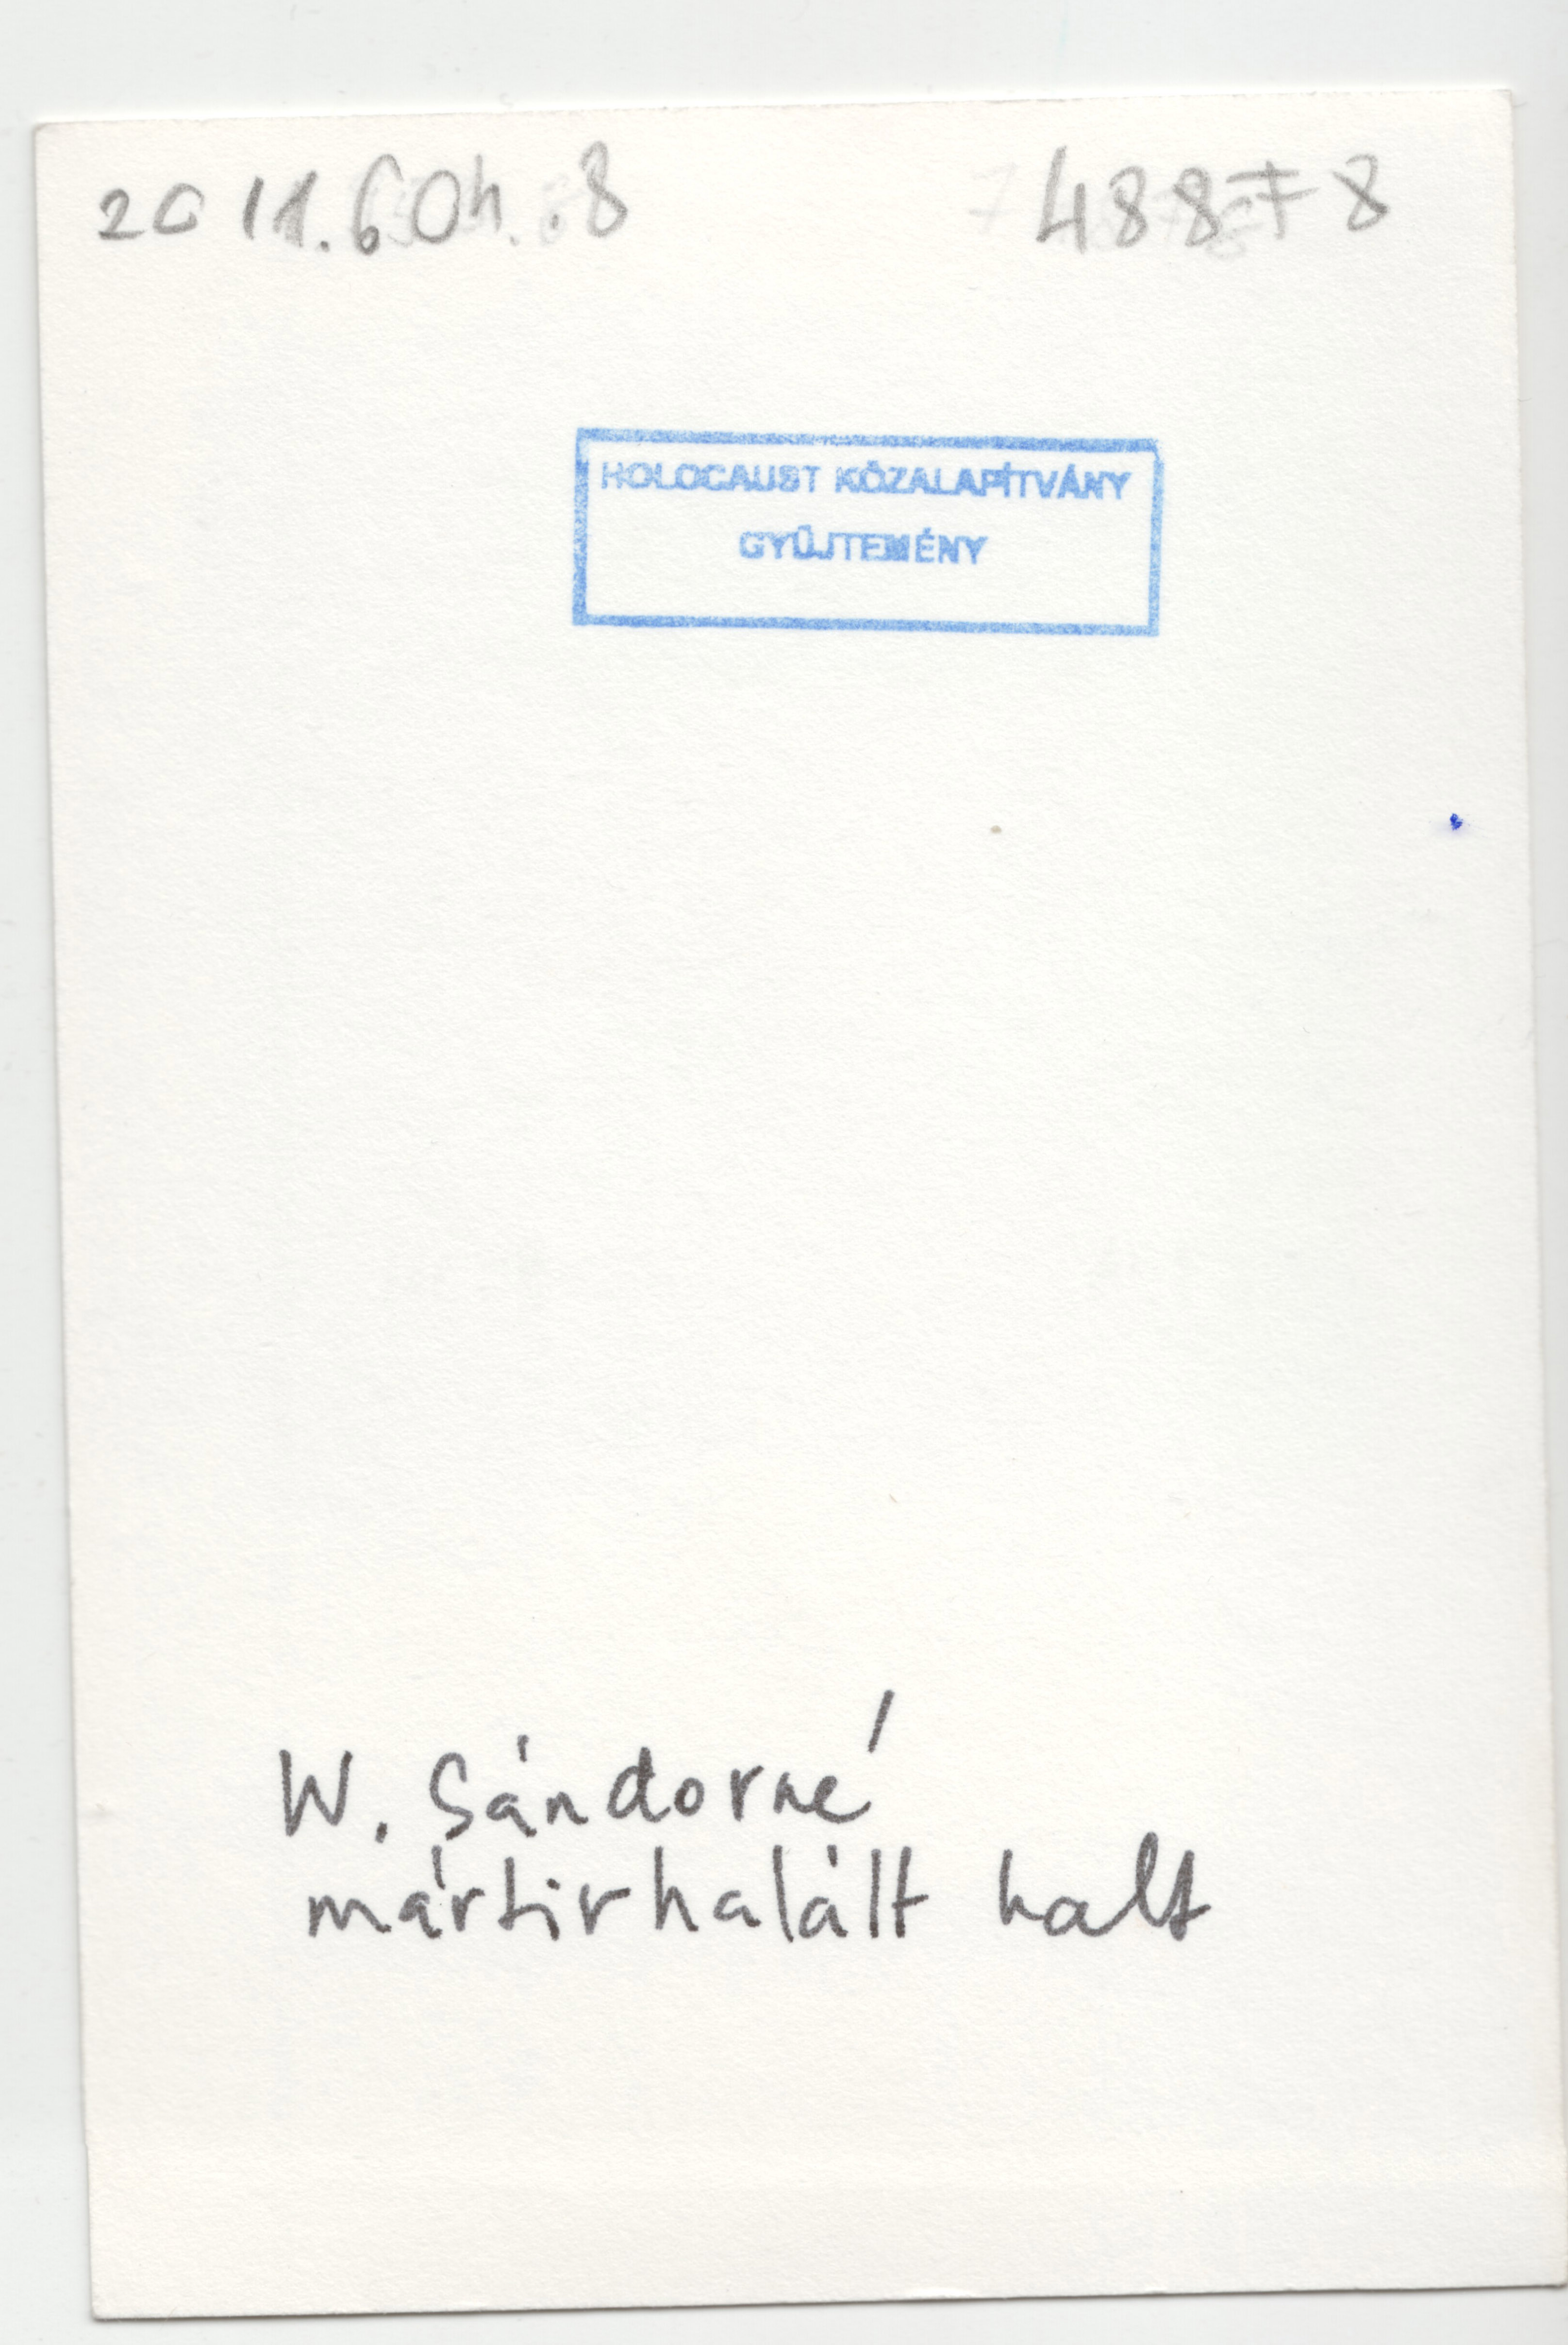 2011.604.8
48878
HOLOCAUST KÖZALAPÍTVÁNY
GYŰJTEMÉNY
W. Sándorné
mártirhalált halt